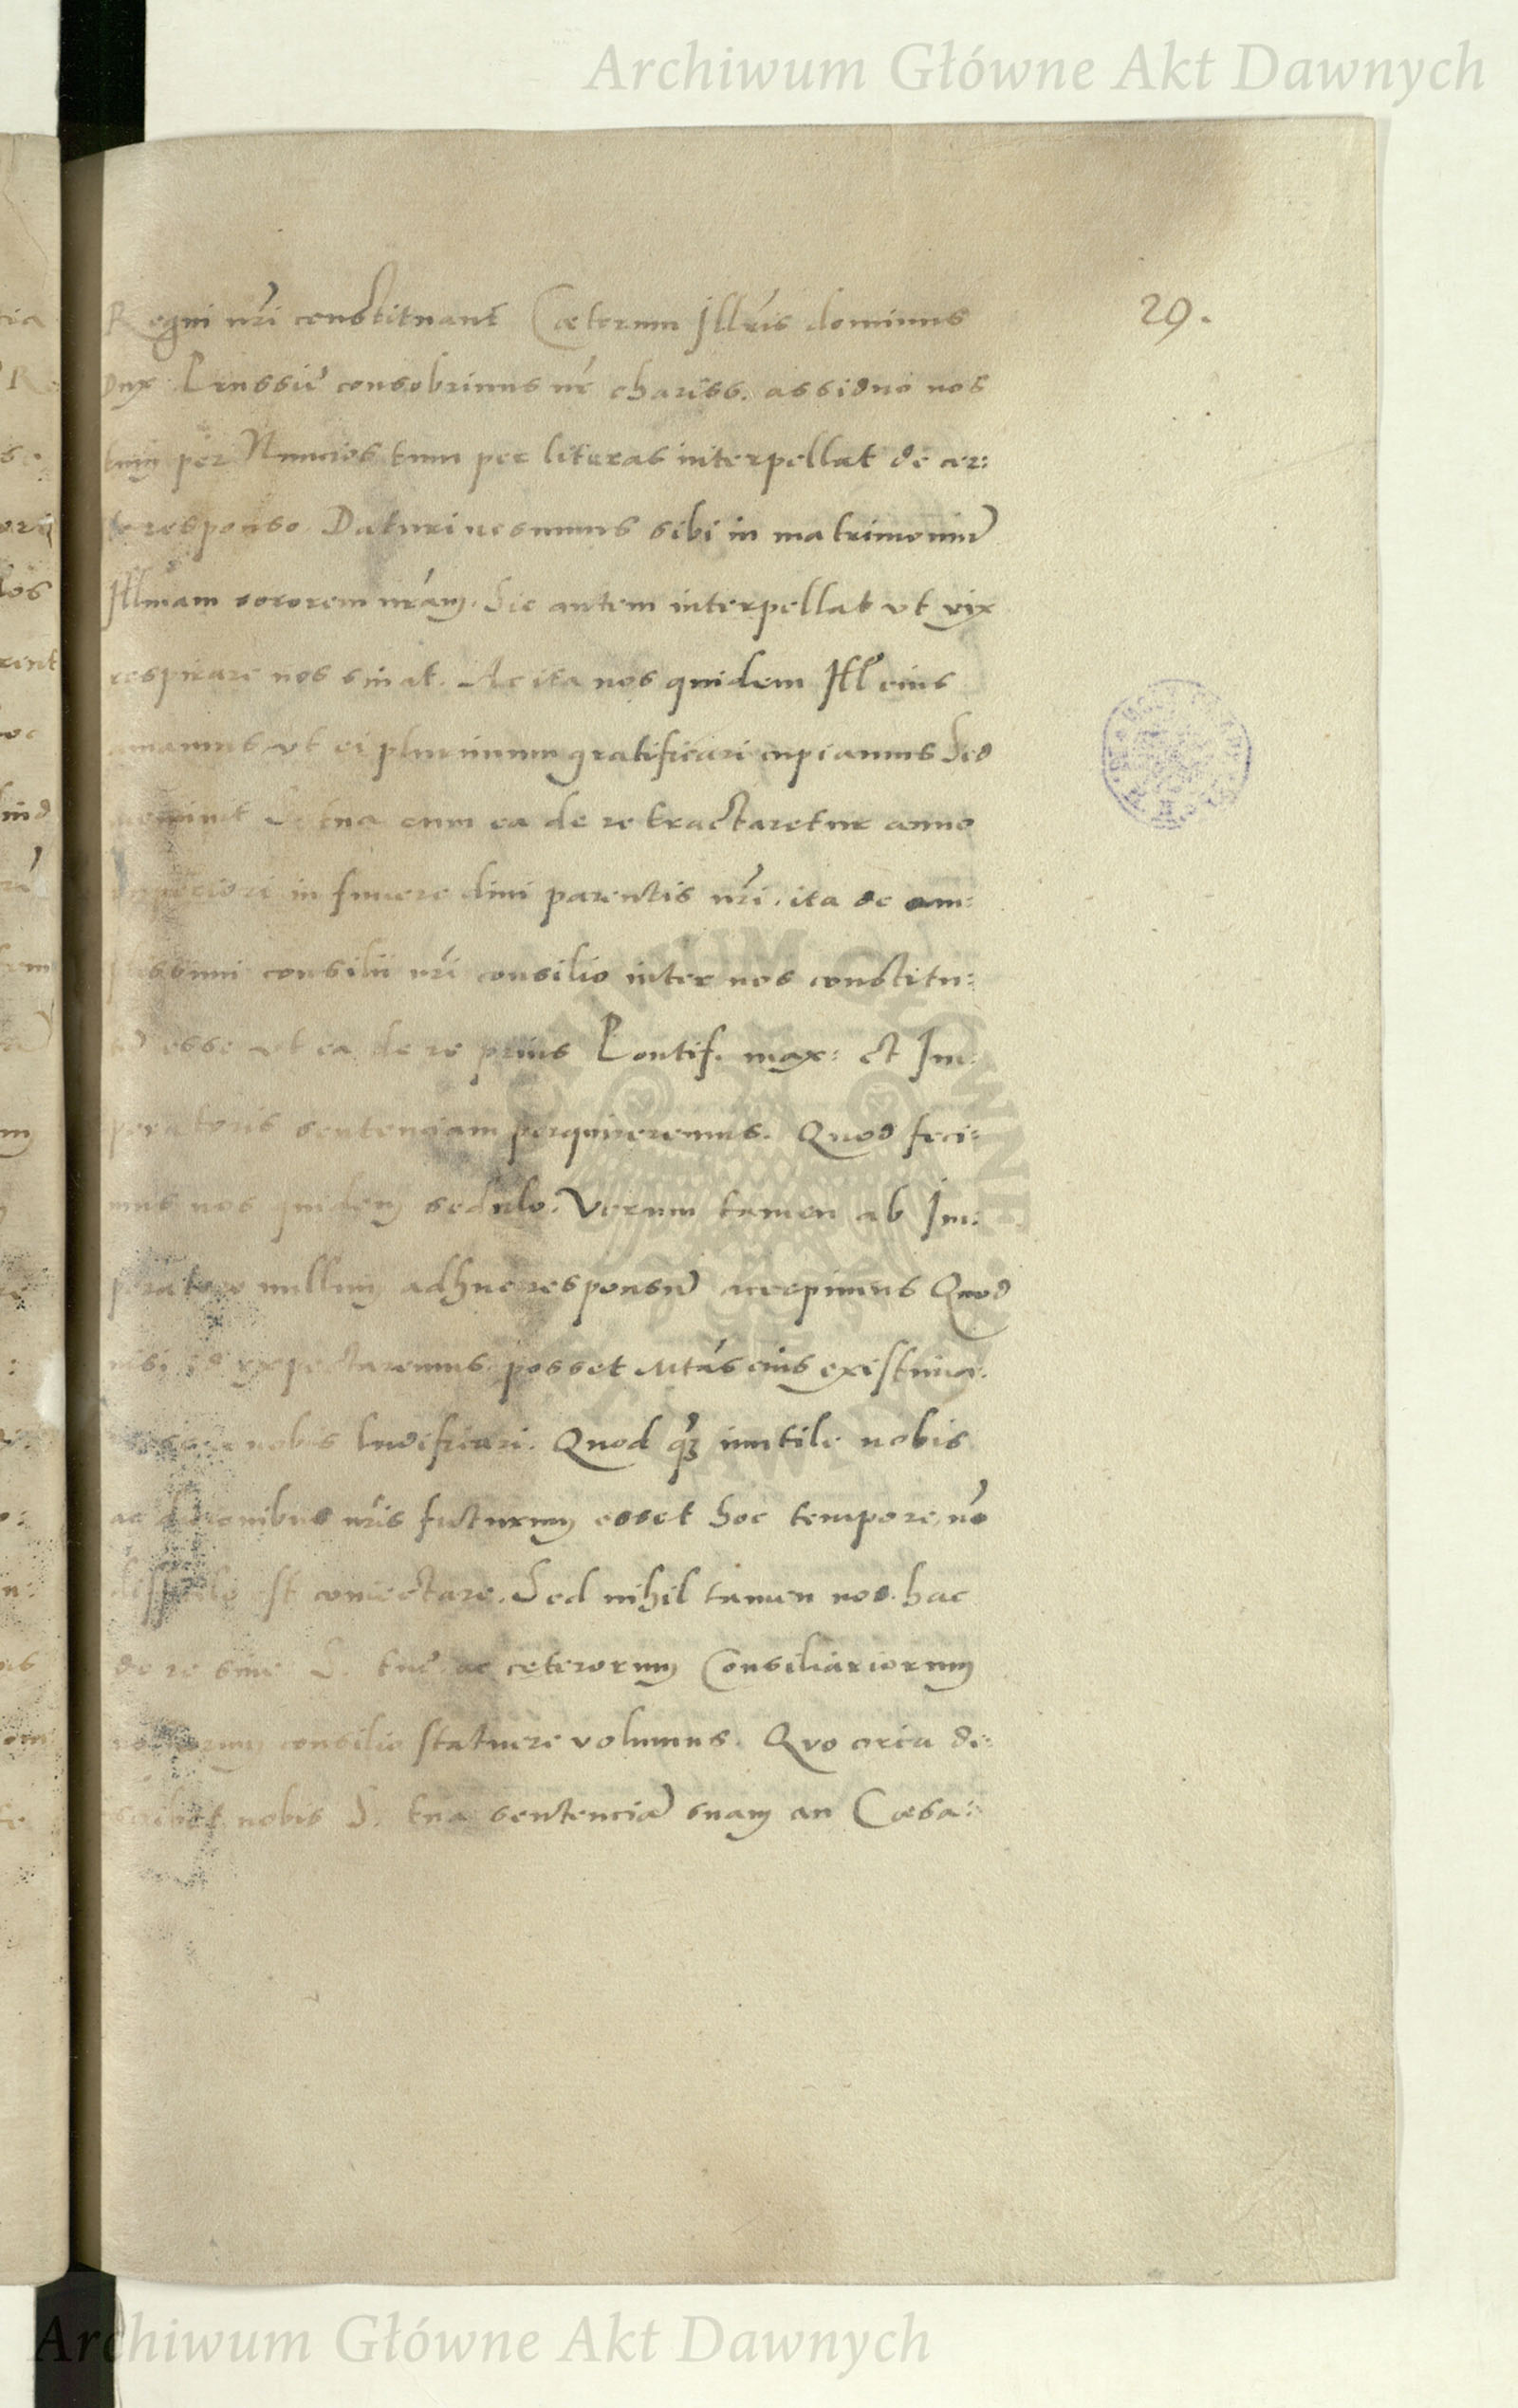 Archiwum Główne Akt Dawnych
29.
Regni nr̃i constituant Cæterum Illr̃is dominus
Dux Prussiæ consobrinus nr̃ chariss. assiduo nos
tum per Nuncios tum per literas interpellat de cer:
to responso Daturi ne sumus sibi in matrimoniũ
Illmam sororem nr̃am. Sic autem interpellat vt vix
respirare nos sinat. Ac ita nos quidem Ill eius
amamus vt ei plurimum gratificari cupiamus Sed
meminit S. tua cum ea de re tractaretur anno
superiori in funere diui parentis nr̃i. ita de am:
plissimi consilii nr̃i consilio inter nos constitu:
tũ esse vt ea de re prius Pontif. max: et Im:
peratoris sentenciam perquireremus. Quod feci:
mus nos quidem sedulo. Verum tamen ab Im:
peratore nullum adhuc responsũ accepimus Quod
nisi id expectaremus posset Mtás eius existima:
re se a nobis ludificari. Quod q̃ inutile nobis
ac ditionibus nr̃is futurum esset hoc tempore, nõ
difficile est coniectare. Sed nihil tamen nos hac
de re sine S. tuæ ac ceterorum Consiliariorum
nostrorum consilio statuere volumus. Quo circa de:
scribet nobis S. tua sentenciã suam an Cæsa:
Archiwum Główne Akt Dawnych